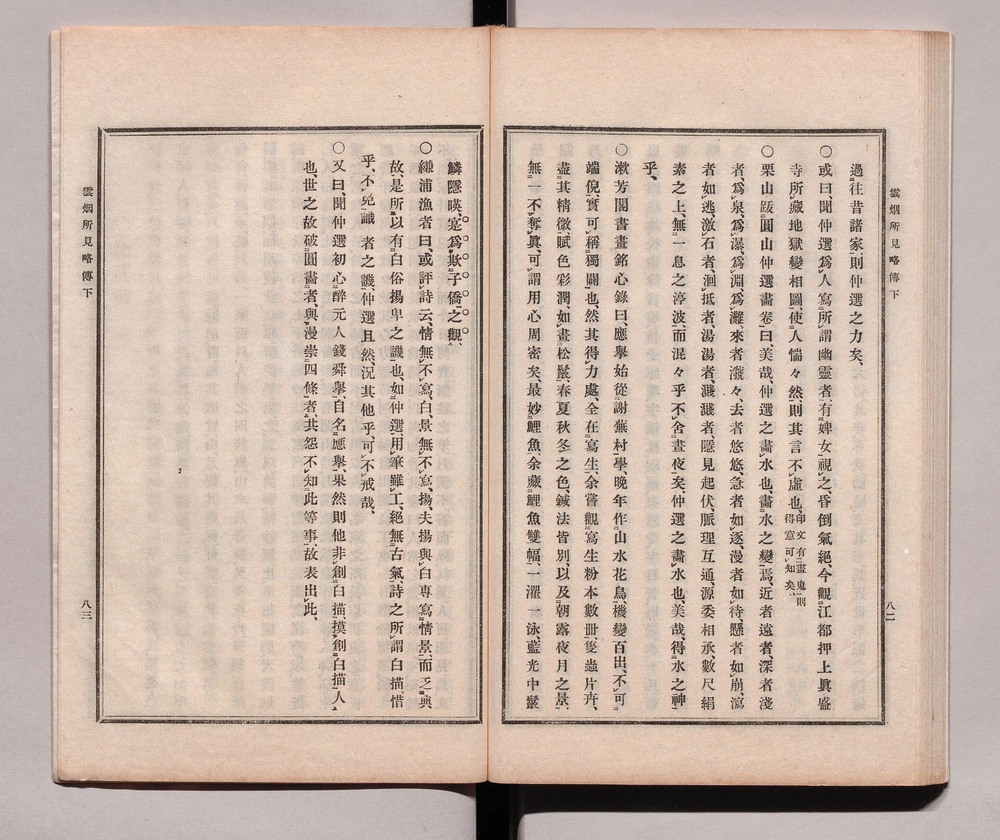 雲烟所見略傳下
八二
過往昔諸家、則仲選之力矣、
〇或曰、聞仲選爲人寫所謂幽靈者、有婢女視之、昏倒氣絕、今觀江都押上眞盛
寺所藏地獄變相圖、使人惴々然、則其言不虛也、印文有畫鬼則得意可知矣、
〇栗山跋圓山仲選畫卷曰、美哉、仲選之畫水也、畫水之變焉、近者遠者深者淺
者、爲泉、爲瀑、爲淵、爲灘、來者潑々、去者悠悠、急者如逐、漫者如待、懸者如崩、瀉
者如逃、激石者、洄抵者、湯湯者、濺濺者、隱見起伏、脈理互通、源委相承、數尺絹
素之上、無一息之渟波、而混々乎不舍晝夜矣、仲選之畫水也、美哉、得水之神
乎、
〇漱芳閣書畫銘心錄曰、應擧始從謝蕪村學、晚年作山水花鳥、機變百出、不可
端倪、實可稱獨闢也、然其得力處、全在寫生、余嘗觀寫生粉本數冊、隻蟲片卉、
盡其精微、賦色彩潤、如畫松鬣、春夏秋冬之色、鍼法皆別、以及朝露夜月之景、
無一不奪眞、可謂用心周密矣、最妙鯉魚、余藏鯉魚雙幅、一濯一泳、藍光中鬣
鱗隱暎、寔爲欺子僑之觀、
〇綀浦漁者曰、或評詩云、情無不寫、白、景無不寫、揚、夫揚與白專寫情景、而乏典
故、是所以有白俗揚卑之譏也、如仲選、用筆雖工、絕無古氣、詩之所謂白描惜
乎、不免識者之譏、仲選且然、況其他乎、可不戒哉、
〇又曰、聞仲選初心醉元人錢舜擧、自名應擧、果然則他非創白描、摸創白描人
也、世之故破圓畫者、與漫崇四條者、其怨不知此等事、故表出此、
雲烟所見略傳下
八三